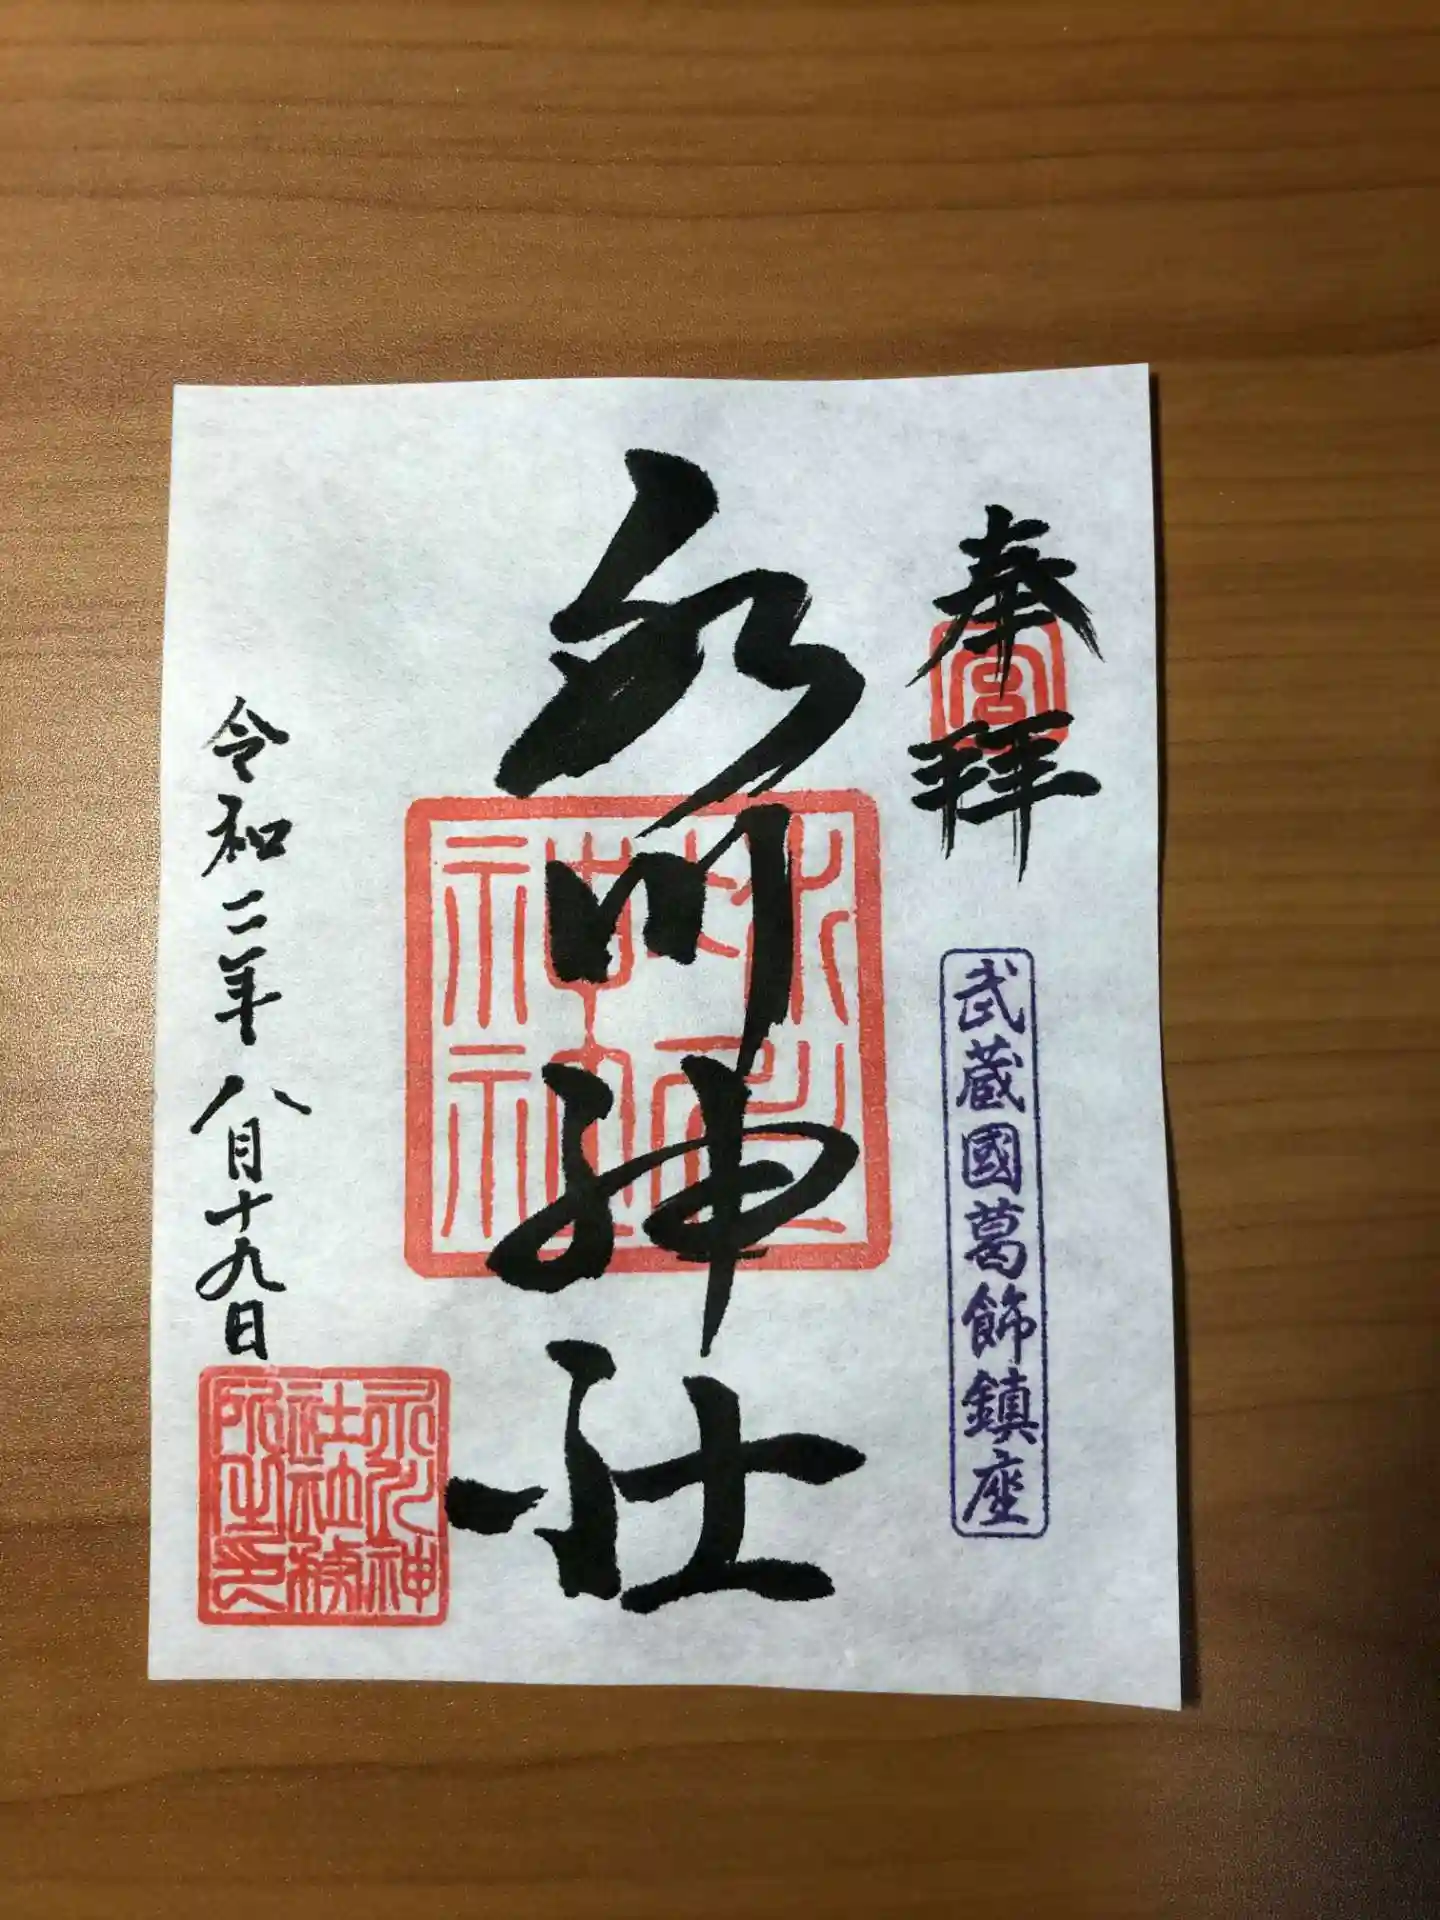 奉拝
宮
武蔵國葛飾鎮座
氷川神社
令和二年八月十九日
氷川神
社社務
所之印